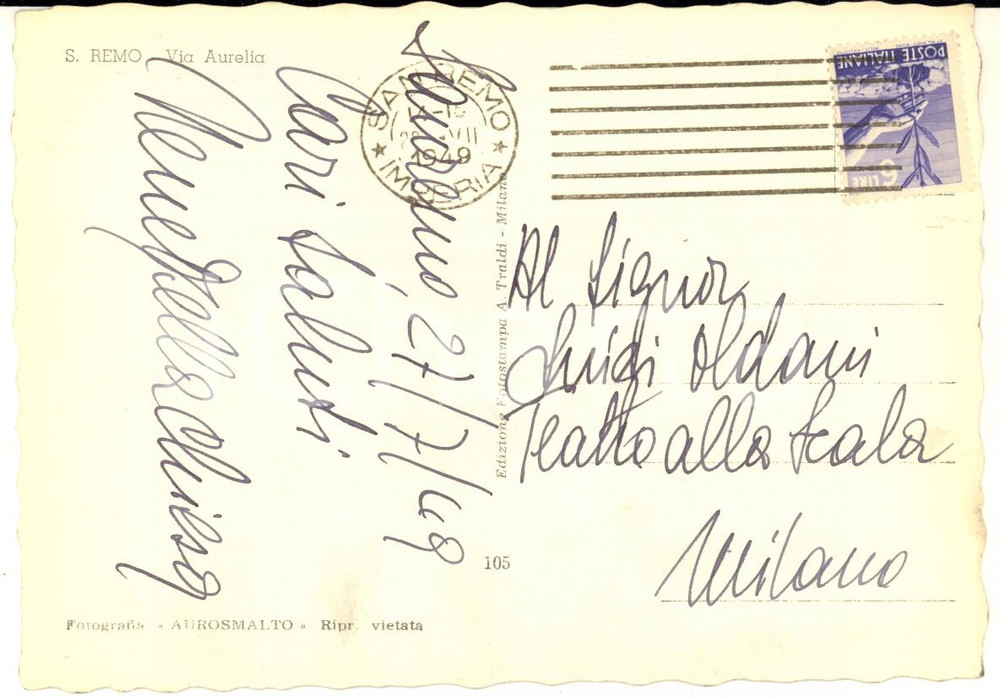 S. REMO - Via Aurelia
Sanremo, 27/7/49
Cari saluti
SAN REMO
1949
IMPERIA
POSTE ITALIANE
6 LIRE
Edizione Fotostampa A Traldi - Milano
Al Signor
Luigi Oldani
Teatro alla Scala
Milano
105
Fotografia « AUROSMALTO » Ripr. vietata